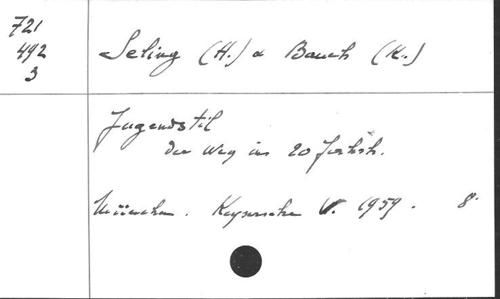 721
492
3
Seling (H.) & Bauch (K.)
Jugendstil
der Weg ins 20 Jahrh.
München. Keysersche V. 1959. 8°